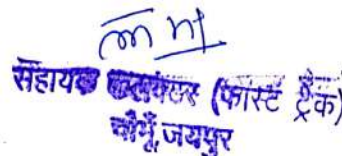 सहायक कलेक्टर (फास्ट ट्रैक)
चौमूँ, जयपुर